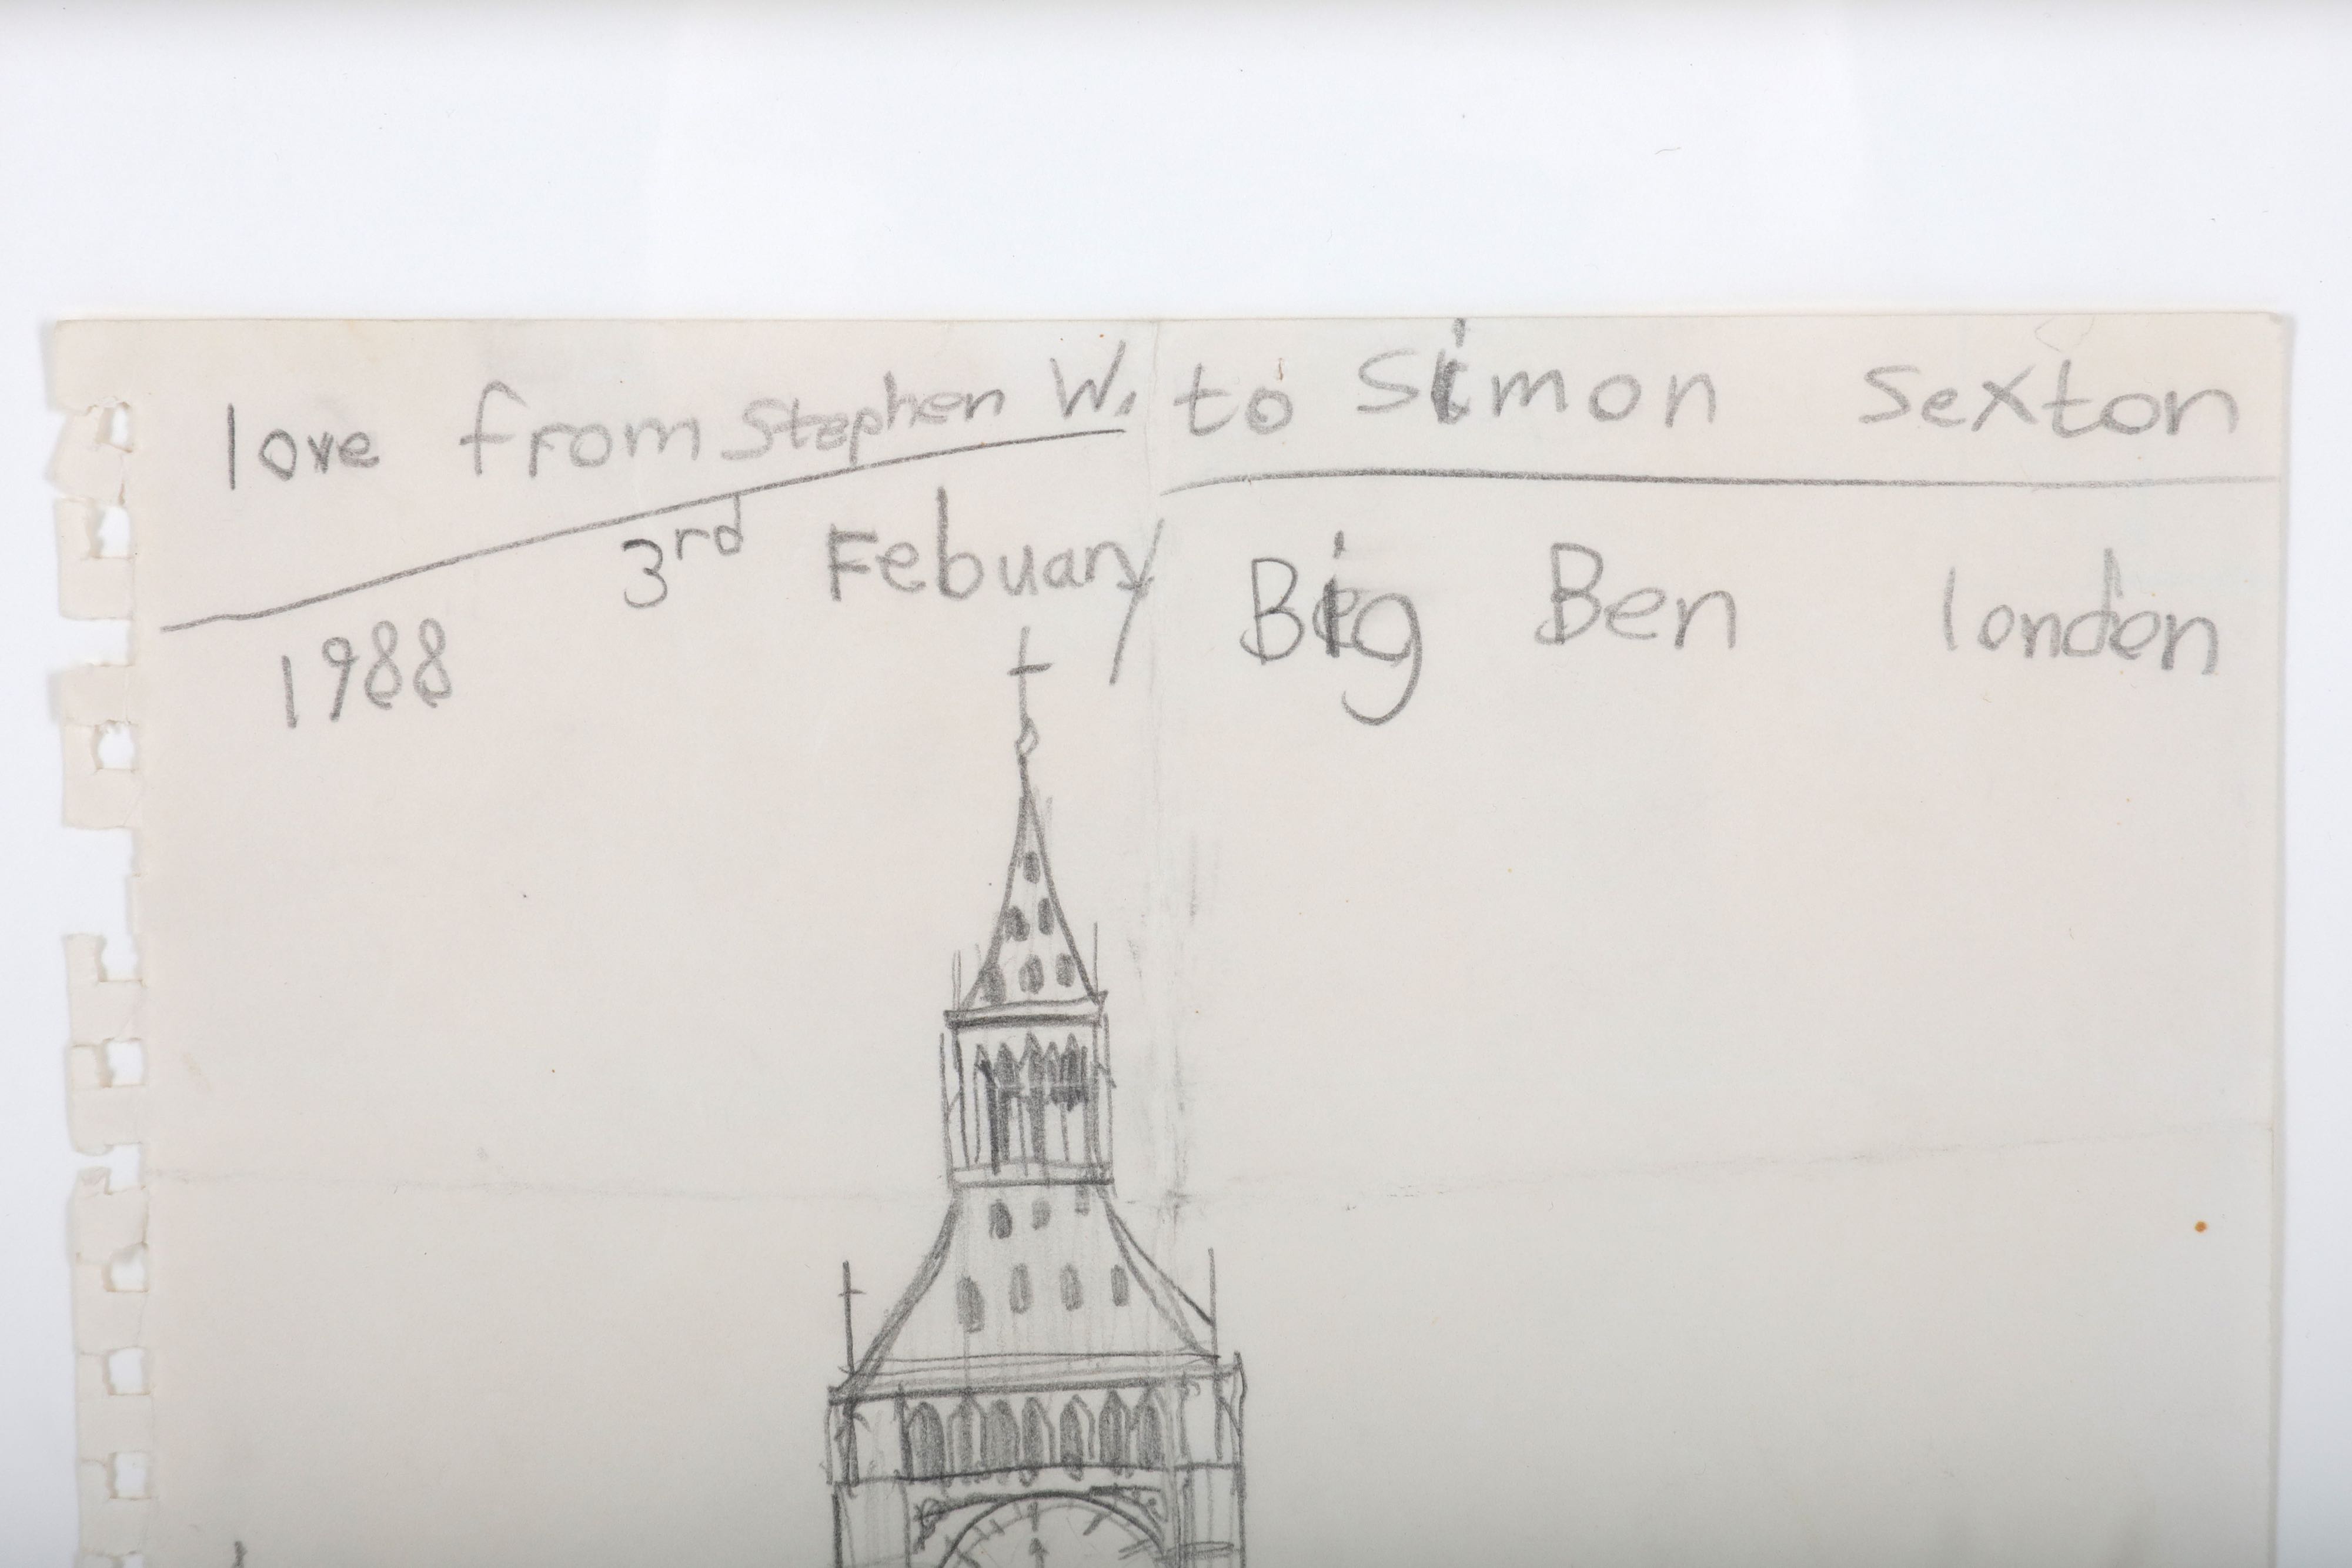 love from Stephen W. to Simon Sexton
3rd Febuary Big Ben london
1988